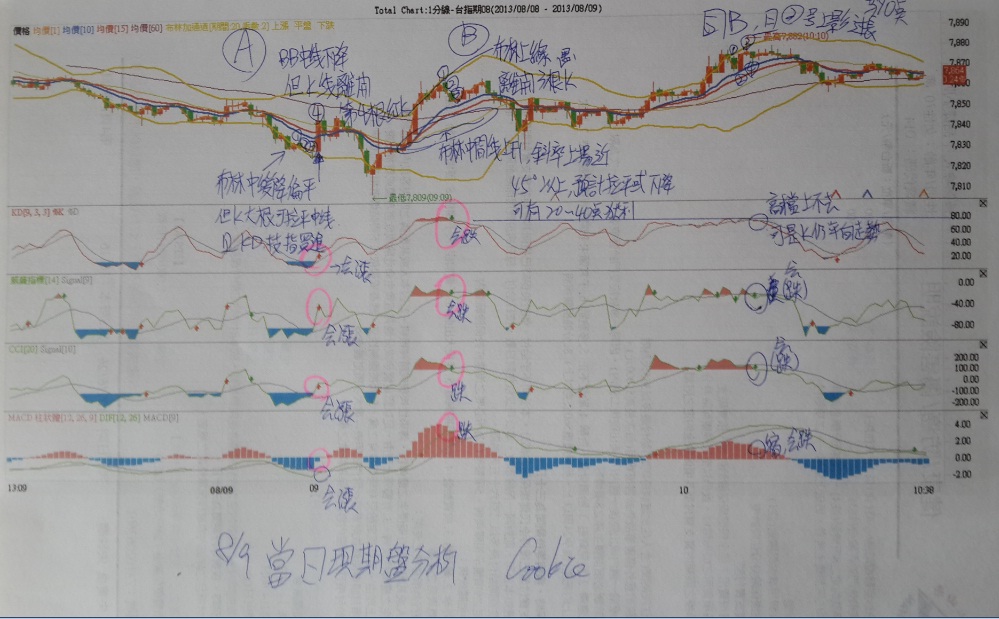 Total Chart:1分線-台指期08(2013/08/08 - 2013/08/09)
價格 均價[1] 均價[10] 均價[15] 均價[60] 布林加通道[期間:20 乖數:2] 上漲 平盤 下跌
最高7,882(10:10)
7,890
7,880
7,870
7,864
7,850
7,840
7,830
7,820
7,810
A
BB中线下降
但上线離開
④ 第4根紅K
布林中线降偏平
但K大根可拉平中线
且KD技指買進
B
布林上線
離開3根K
布林中間线上升,斜率上揚近
45°以上,預計拉平或下降
可有20~40点獲利
最低7,809(09:09)
KD[9, 3, 3] %K %D
80.00
60.00
40.00
20.00
会漲
会跌
高檔上不去
Signal[9]
0.00
-40.00
-80.00
会漲
会跌
会
(跌)
CCI[20] Signal[10]
200.00
100.00
0.00
-100.00
-200.00
会漲
跌
会
(跌)
MACD 柱狀體[12, 26, 9] DIF[12, 26] MACD[9]
4.00
2.00
0.00
-2.00
跌
縮,会跌
会漲
13:09
08/09
09
10
10:38
8/9 當日現期盤分析 Cookie